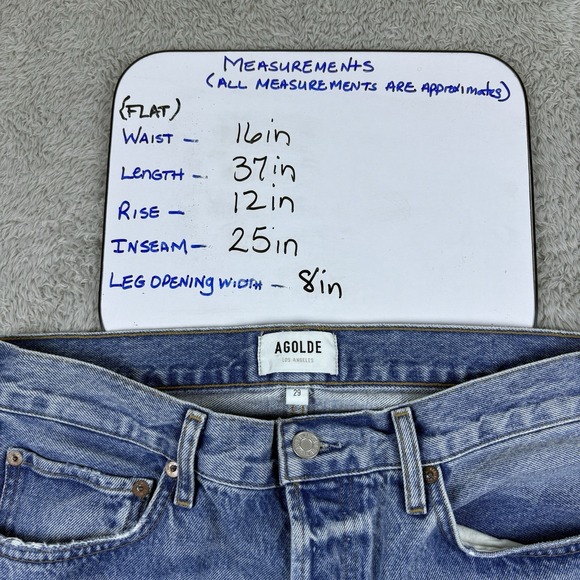 MEASUREMENTS
(ALL MEASUREMENTS ARE APPROXIMATES)
(FLAT)
WAIST - 16in
LENGTH - 37in
RISE - 12in
INSEAM - 25in
LEG OPENING WIDTH - 8in
AGOLDE
LOS ANGELES
29